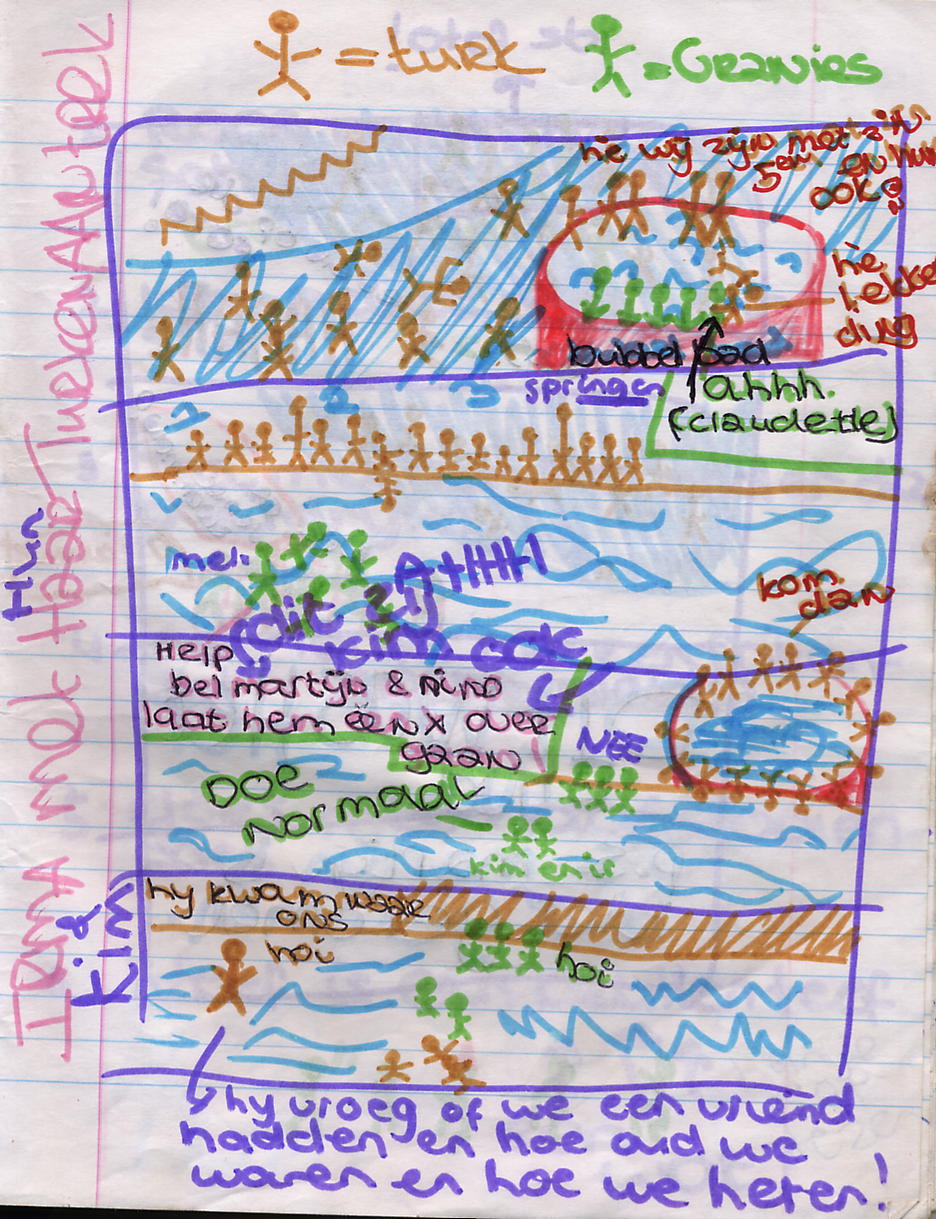 = turk
= Granies
he wij zijn met z'n
5en en hun
ook
he
lekker
ding
bubbel bad
springen
ahhh.
(claudette)
1 2 3
mel:
AHHH
dit zij
kim ook
kom
dan
Help
bel martijn & nino
laat hem één x over
gaan
NEE
DOE
NORmaal
kim en ir
hy kwam naar
ons
hoi
hoi
hy vroeg of we een vriend
hadden en hoe oud we
waren en hoe we heten!
Irma & kim met Haar Hun